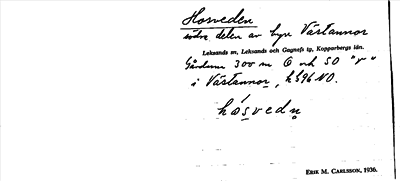 Hosveden
södra delen av byn Västannor
Leksands sn, Leksands och Gagnefs tg, Kopparbergs län.
Gårdarna 300 m O och SO "r"
i Västannor, k 596 NO.
hósvedn
ERIK M. CARLSSON, 1936.